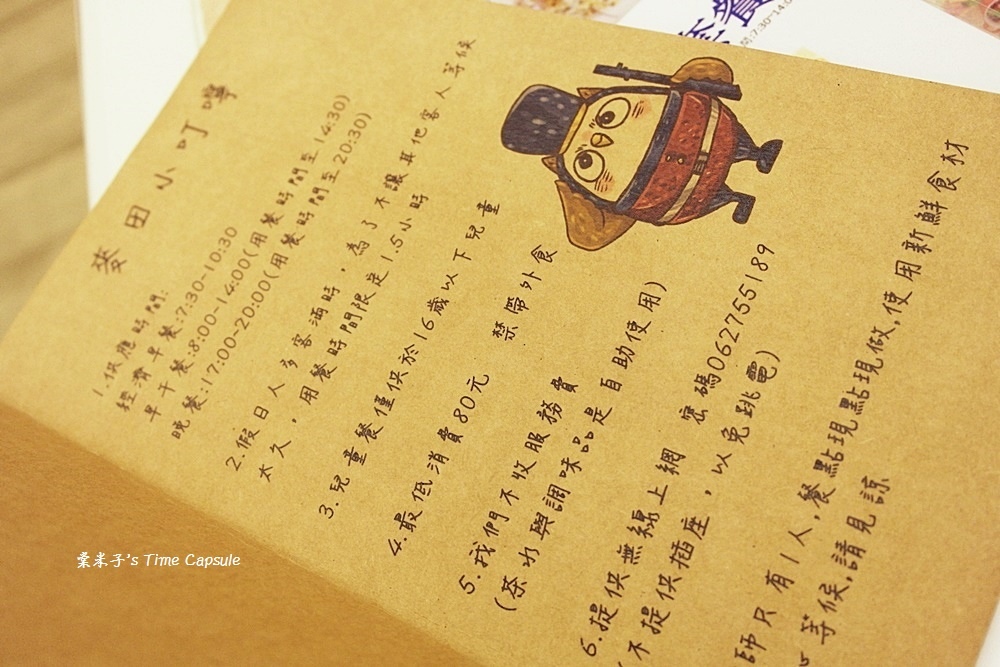 麥田小叮嚀
1.供應時間:
經濟早餐:7:30-10:30
早午餐:8:00-14:00(用餐時間至14:30)
晚餐:17:00-20:00(用餐時間至20:30)
2.假日人多客滿時，為了不讓其他客人等候
太久，用餐時間限定1.5小時
3.兒童餐僅供於16歲以下兒童
4.最低消費80元 禁帶外食
5.我們不收服務費
(茶水與調味品是自助使用)
6.提供無線上網 密碼062755189
不提供插座，以免跳電)
師只有1人,餐點現點現做,使用新鮮食材
心等候,請見諒
棗米子's Time Capsule